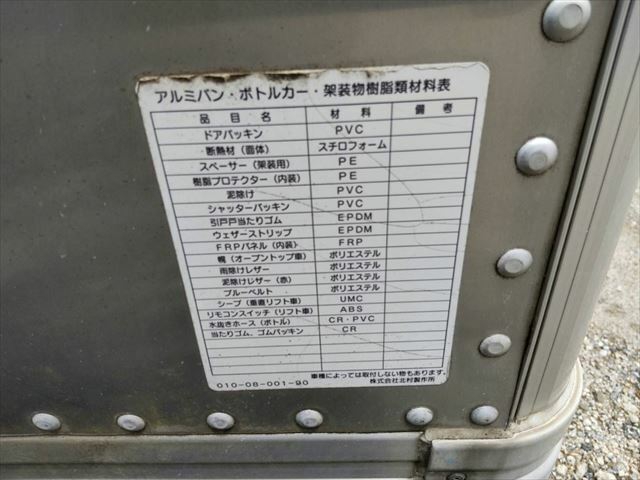 アルミバン・ボトルカー・架装物樹脂類材料表
品目名 材料 備考
ドアパッキン PVC
断熱材(面体) スチロフォーム
スペーサー(架装用) PE
樹脂プロテクター(内装) PE
泥除け PVC
シャッターパッキン PVC
引戸戸当たりゴム EPDM
ウェザーストリップ EPDM
FRPパネル(内装) FRP
幌(オープントップ車) ポリエステル
雨除けレザー ポリエステル
泥除けレザー(赤) ポリエステル
ブルーベルト ポリエステル
シーブ(垂直リフト車) UMC
リモコンスイッチ(リフト車) ABS
水抜きホース(ボトル) CR・PVC
当たりゴム、ゴムパッキン CR
車種によっては取付しない物もあります。
010-08-001-90 株式会社北村製作所